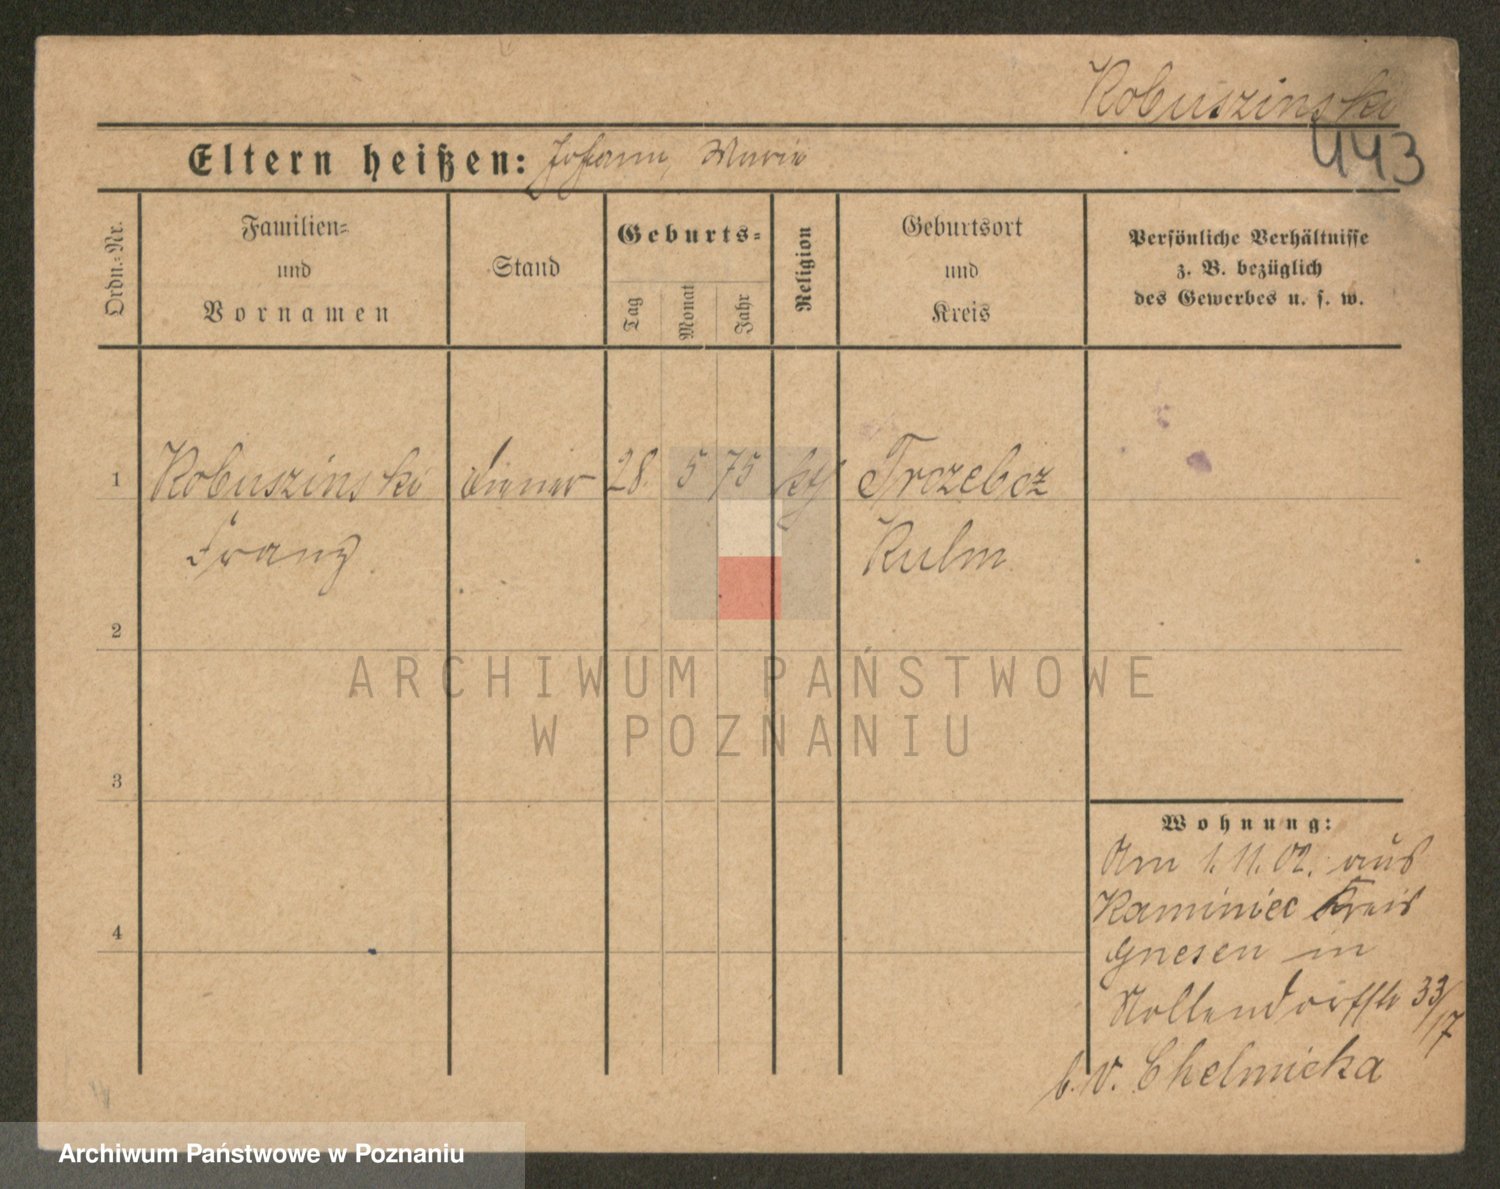 Kobuszinski
443
Eltern heißen: Johann, Marie
Ordn.-Nr.
Familien-
und
Vornamen
Stand
Geburts-
Tag
Monat
Jahr
Religion
Geburtsort
und
Kreis
Persönliche Verhältnisse
z. B. bezüglich
des Gewerbes u. s. w.
1 Kobuszinski Diener 28. 5 75 kth Trzebcz
Franz. Kulm
2
3
4
ARCHIWUM PAŃSTWOWE
W POZNANIU
Wohnung:
Am 1.11.02. aus
Kaminiec Kreis
Gnesen in
Nollendorffstr 33/17
b. v. Chelmicka
Archiwum Państwowe w Poznaniu